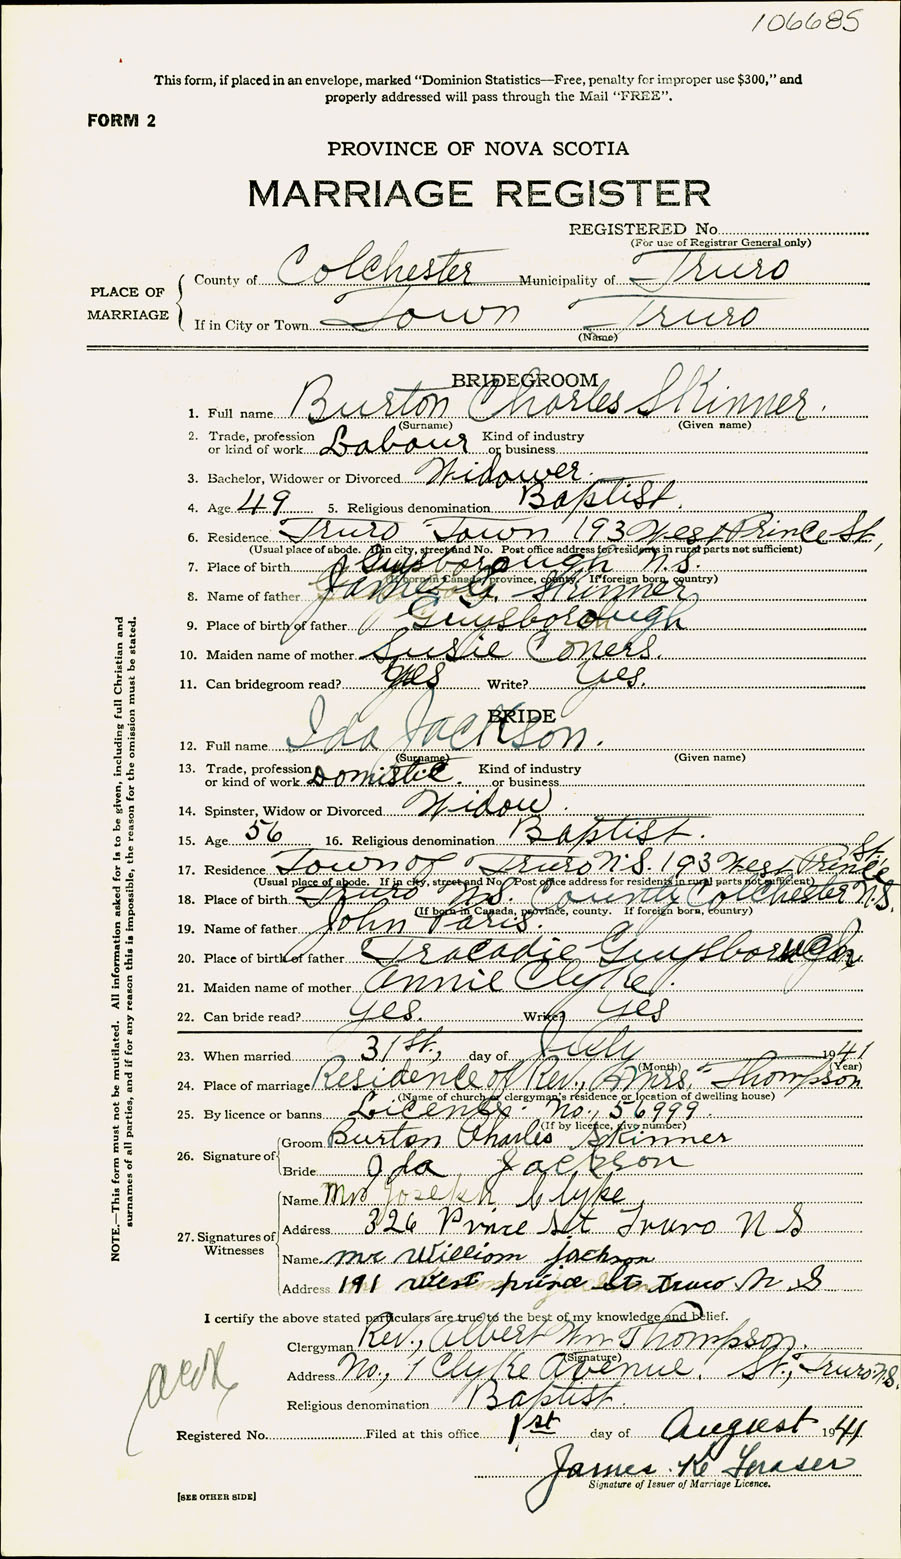 106685
This form, if placed in an envelope, marked "Dominion Statistics—Free, penalty for improper use $300," and
properly addressed will pass through the Mail "FREE".
FORM 2
PROVINCE OF NOVA SCOTIA
MARRIAGE REGISTER
REGISTERED No.
(For use of Registrar General only)
PLACE OF MARRIAGE
County of Colchester Municipality of Truro
If in City or Town Town Truro
(Name)
BRIDEGROOM
1. Full name Burton Charles Skinner.
(Surname) (Given name)
2. Trade, profession or kind of work Labour Kind of industry or business
3. Bachelor, Widower or Divorced Widower.
4. Age 49 5. Religious denomination Baptist.
6. Residence Truro Town 193 West Prince St,
(Usual place of abode. If in city, street and No. Post office address for residents in rural parts not sufficient)
7. Place of birth Guysborough N.S.
(If born in Canada, province, county. If foreign born, country)
8. Name of father James G. Skinner
9. Place of birth of father Guysborough
10. Maiden name of mother Susie Coners.
11. Can bridegroom read? Yes Write? Yes.
BRIDE
12. Full name Ida Jackson.
(Surname) (Given name)
13. Trade, profession or kind of work Domistic. Kind of industry or business
14. Spinster, Widow or Divorced Widow.
15. Age 56 16. Religious denomination Baptist.
17. Residence Town of Truro N.S. 193 West Prince St.
(Usual place of abode. If in city, street and No. Post office address for residents in rural parts not sufficient)
18. Place of birth Truro N.S. County Colchester N.S.
(If born in Canada, province, county. If foreign born, country)
19. Name of father John Paris.
20. Place of birth of father Tracadie Guysborough
21. Maiden name of mother Annie Clyke.
22. Can bride read? Yes. Write? Yes
23. When married 31st, day of July 1941
(Month) (Year)
24. Place of marriage Residence of Rev., & Mrs. Thompson
(Name of church or clergyman's residence or location of dwelling house)
25. By licence or banns License. No., 56999.
(If by licence, give number)
26. Signature of
Groom Burton Charles Skinner
Bride Ida Jackson
27. Signatures of Witnesses
Name Mrs Joseph Clyke
Address 326 Prince St Truro N S
Name mr William jackson
Address 191 West prince St Truro N S
I certify the above stated particulars are true to the best of my knowledge and belief.
Clergyman Rev., Albert Wm Thompson.
(Signature)
Address No., 1 Clyke Avenue. St., Truro N.S.
Religious denomination Baptist.
Registered No. Filed at this office 1st day of August 1941
James K Fraser
Signature of Issuer of Marriage Licence.
[SEE OTHER SIDE]
NOTE.—This form must not be mutilated. All information asked for is to be given, including full Christian and
surnames of all parties, and if for any reason this is impossible, the reason for the omission must be stated.